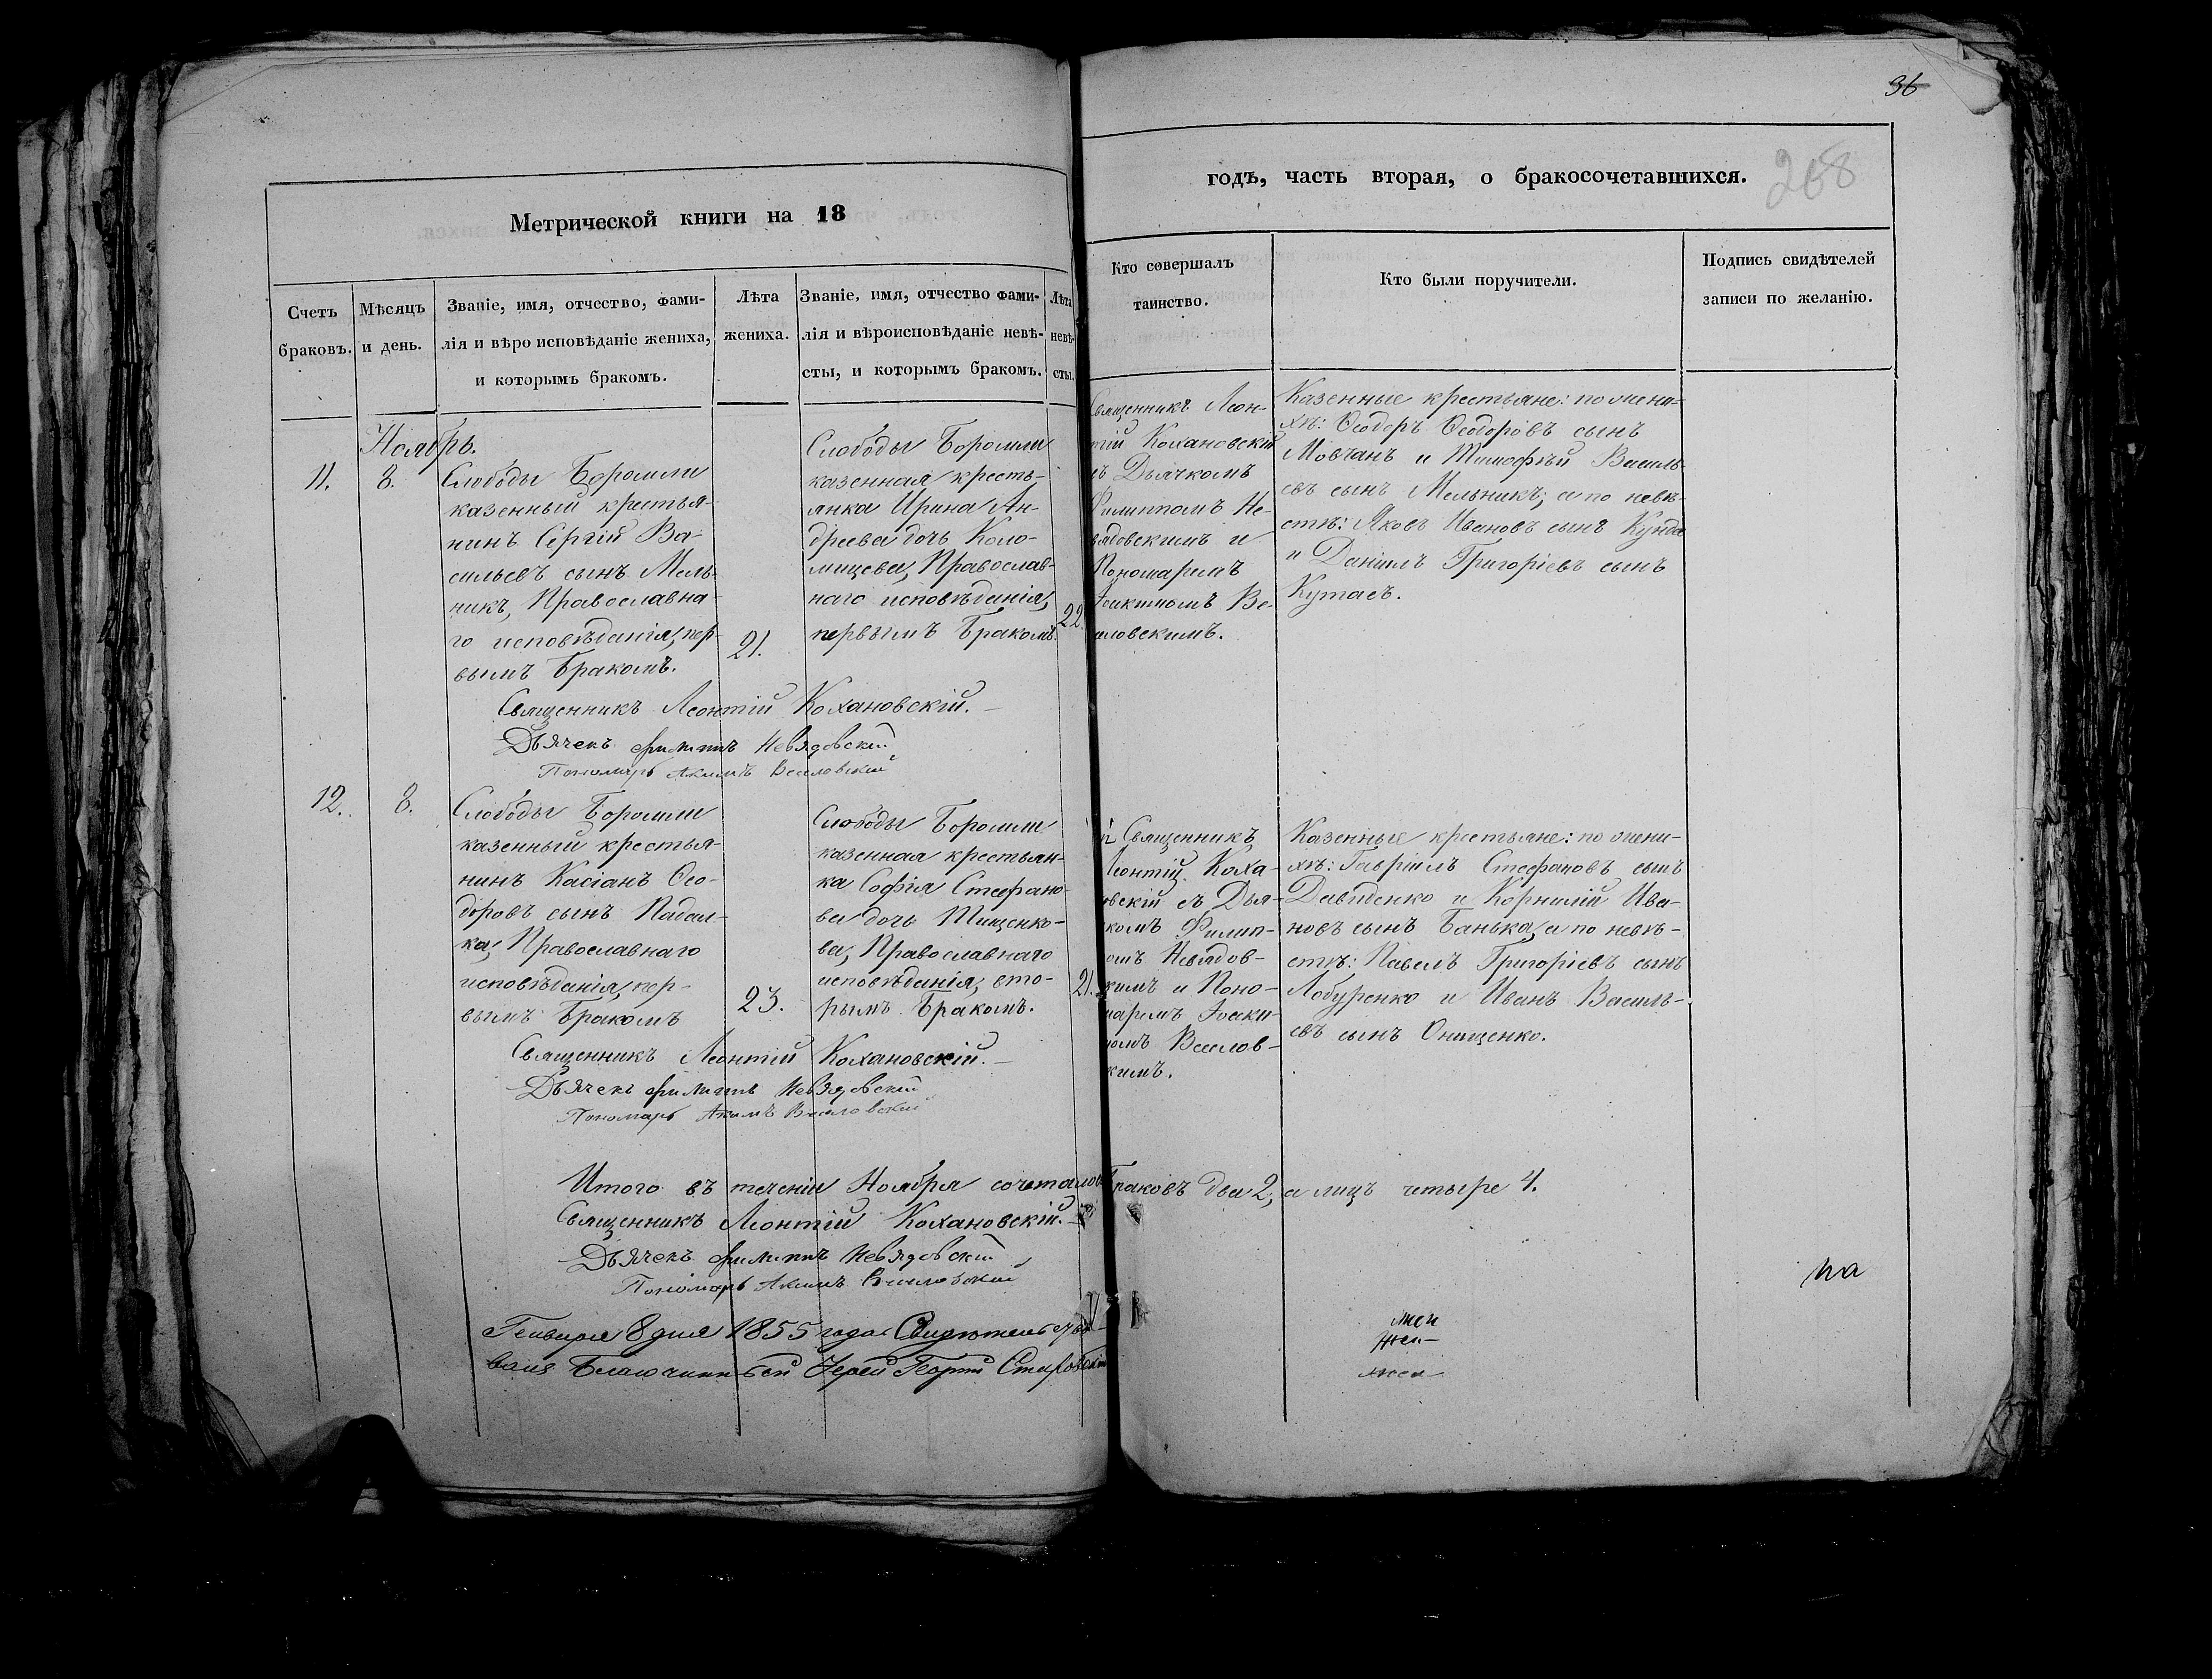 36
268
Метрической книги на 18
годъ, часть вторая, о бракосочетавшихся.
Счетъ
браковъ.
Мѣсяцъ
и день.
Званіе, имя, отчество, фами-
лія и вѣро исповѣданіе жениха,
и которымъ бракомъ.
Лѣта
жениха.
Званіе, имя, отчество фами-
лія и вѣроисповѣданіе невѣ-
сты, и которымъ бракомъ.
Лѣта
невѣ-
сты.
Кто совершалъ
таинство.
Кто были поручители.
Подпись свидѣтелей
записи по желанію.
Ноябрь.
11.
8.
Слободы Боромли
казенный крестья-
нинъ Сергій Ва-
сильевъ сынъ Мель-
никъ, Православна-
го исповѣданія, пер-
вымъ бракомъ.
21.
Слободы Боромли
казенная кресть-
янка Ирина Ан-
дреева дочь Коло-
мицева, Православ-
наго исповѣданія,
первымъ бракомъ.
22.
Священникъ Леон-
тій Кохановскій
съ Дьячкомъ
Филиппомъ Не-
вядовскимъ и
Пономаремъ
Іоакимомъ Ве-
иловскимъ.
Казенные крестьяне: по жени-
хѣ: Ѳеодоръ Ѳеодоровъ сынъ
Мовчанъ и Тимофѣй Василь-
евъ сынъ Мельникъ; а по невѣ-
стѣ: Яковъ Ивановъ сынъ Кунда
и Даніилъ Григоріевъ сынъ
Кутаевъ.
Священникъ Леонтій Кохановскій.
Дьячекъ Филиппъ Невядовскій
Пономарь Акимъ Веселовскій
12.
8.
Слободы Боромли
казенный крестья-
нинъ Касіанъ Ѳео-
доровъ сынъ Падал-
ка, Православнаго
исповѣданія, пер-
вымъ бракомъ
23.
Слободы Боромли
казенная крестьян-
ка Софія Стефано-
ва дочь Тищенко-
ва, Православнаго
исповѣданія, вто-
рымъ бракомъ.
21.
Священникъ
Леонтій Коха-
овскій съ Дья-
комъ Филип-
омъ Невядов-
кимъ и Поно-
маремъ Іоаки-
момъ Веселов-
кимъ.
Казенные крестьяне: по жени-
хѣ: Гавріилъ Стефановъ сынъ
Давиденко и Корнилій Ива-
новъ сынъ Банька, а по невѣ-
стѣ: Павелъ Григоріевъ сынъ
Лобуренко и Иванъ Василь-
евъ сынъ Онищенко.
Священникъ Леонтій Кохановскій.
Дьячекъ Филиппъ Невядовскій
Пономарь Акимъ Веселовскій
Итого въ теченіи Ноября сочеталось браковъ два 2, а лицъ четыре 4.
Священникъ Леонтій Кохановскій.
Дьячекъ Филиппъ Невядовскій
Пономарь Акимъ Веселовскій
Генваря 8 дня 1855 года Свидѣтельство-
валъ Благочинный Іерей Георгій
на